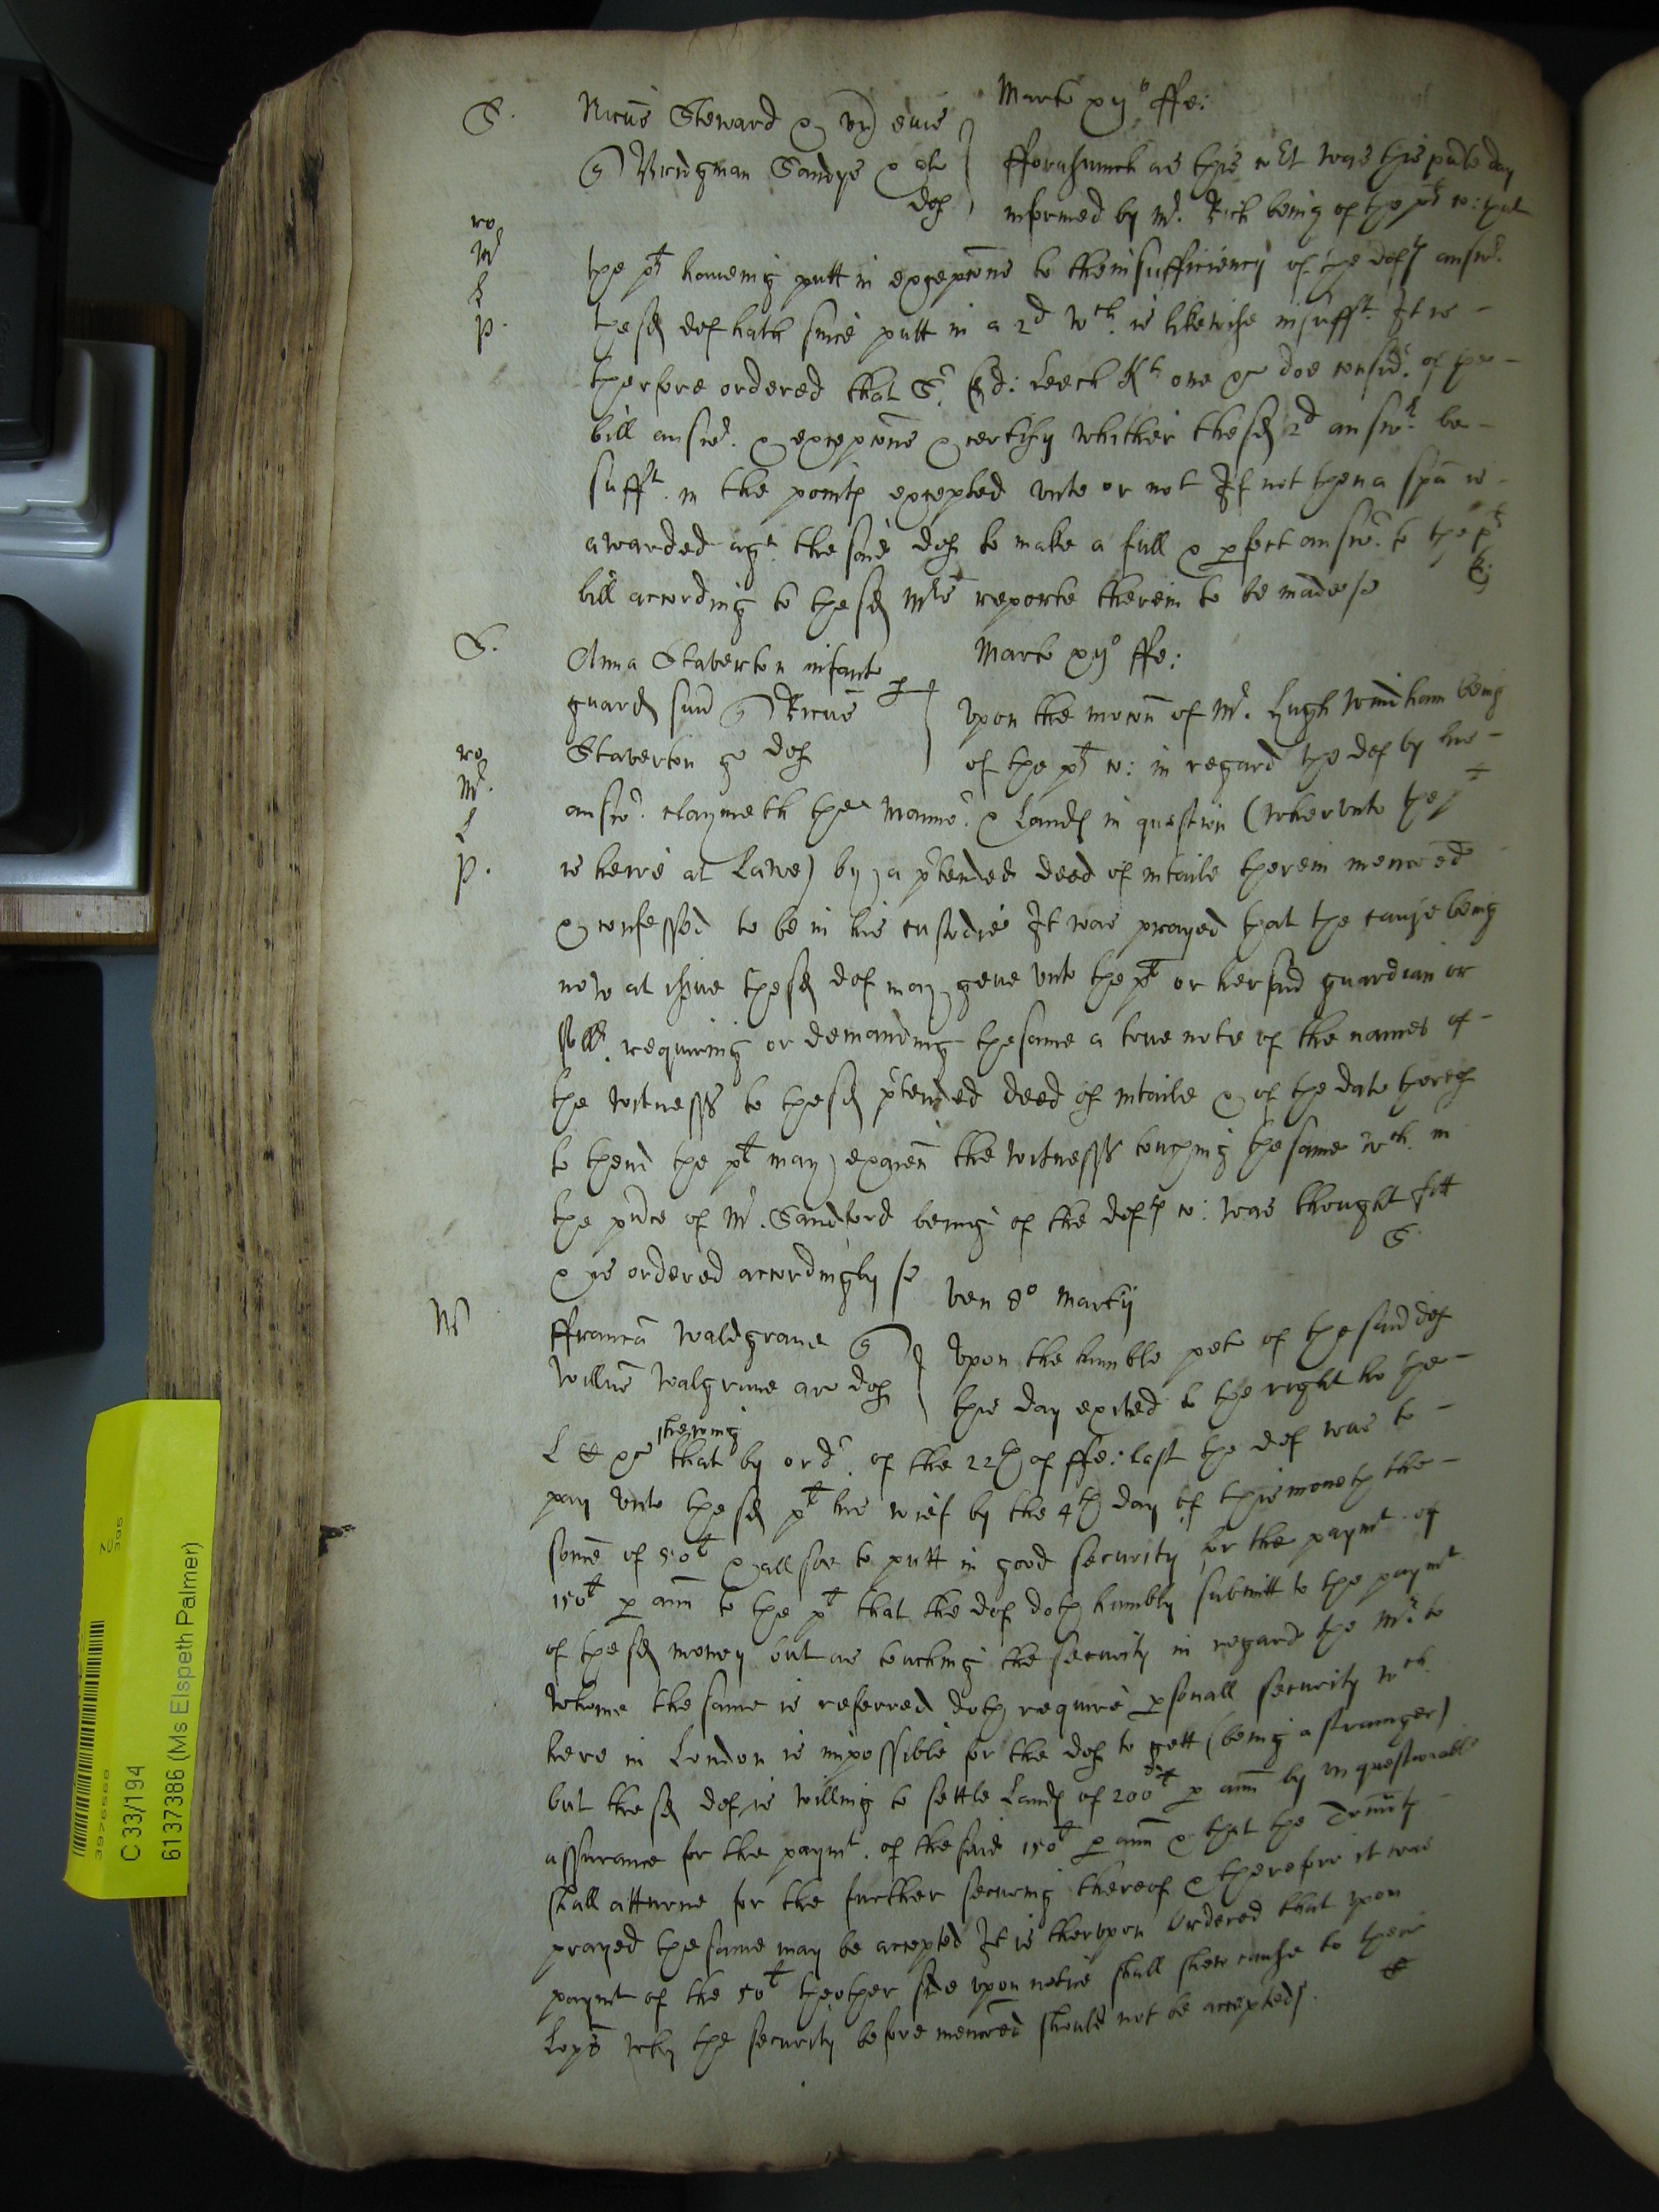 S. Nicus Steward & ux eius Marte xijº ffe:
Bridgman Sandys & al fforasmuch as this Co:rt was this pnte day
def informed by Mr. Rich being of the plts co: that
ro
Mr the plt haveinig putt in excepcons to the insufficiency of the defts answr.
L
p. the sd def hath since putt in a 2d wch. is likewise insufft. It is -
therfore ordered that Sr. Ed: Leech Kt one &c doe considr. of the -
bill answr. & excepcons & certify whither the sd 2d answr. be -
sufft. in the points excepted unto or not If not then a spa is -
awarded agt. the said def to make a full & pfect answr. to the plts
bill according to the sd Mrs reporte therein to be made
S. Anna Staverton infante p Marte xijº ffe:
guard suu Ricus Upon the mocon of Mr. Hugh Windham being
ro Staverton ge def of the plts co: in regard the def by his -
Mr. answr. claymeth the Mannor. & Lands in question (wherunto the plt
L
p. is heire at Lawe) by a p'tended deed of intaile therein menconed
& confessed to be in his custodie It was prayed that the cause being
now at issue the sd def may geve unto the plt or her said guardian or
sollr. requiring or demanding the same a true note of the names of -
the witnesss to the sd p'tended deed of intaile & of the date thereof
to thend the plt may exaien the witnesss touching the same wch. in
the pnce of Mr. Sandford being of the defts co: was thought fitt
& is ordered accordingly S.
W Ven 8º Martij
ffrancis Waldgrave Upon the humble pete of the said def
Willms Walgrave ar def this day exited to the right ho the -
shewing
L K &c that by ordr. of the 22th of ffe: last the def was to -
pay unto the sd plt his wief by the 4th day of this moneth the -
some of 50l & allsoe to putt in good security for the paymt. of
150l p ann to the plt that the def doth humbly submitt to the paymt.
of the sd money but as touching the security in regard the Mr. to
whome the same is referred doth require psonall security wch.
here in London is impossible for the def to gett (being a straunger)
but the sd def is willing to settle Lands of 200l p ann by unquestionable
assurance for the paymt. of the said 150l p ann & that the tennts
shall atturne for the further securing thereof & therefore it was
prayed the same may be accepted It is therupon Ordered that upon
paymt of the 50l theother side upon notice shall shew cause to their
Lopps why the security before menconed should not be accepted
C 33/194
6137386 (Ms Elspeth Palmer)